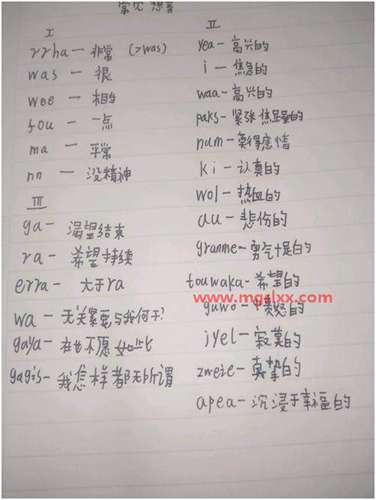 常见想音
I
rrha — 非常 (>was)
was — 很
wee — 相当
fou — 一点
ma — 平常
nn — 没精神
III
ga — 渴望结束
ra — 希望持续
erra — 大于ra
wa — 无关紧要与我何干?
gaya — 再也不愿如此
gagis — 我怎样都无所谓
II
yea — 高兴的
i — 焦急的
waa — 高兴的
paks — 紧张焦虑的
num — 莫得感情
ki — 认真的
wol — 热血的
au — 悲伤的
granme — 勇气十足的
touwaka — 希望的
www.mgalxx.com
guwo — 愤怒的
iyel — 寂寞的
zweie — 真挚的
apea — 沉浸于幸福的